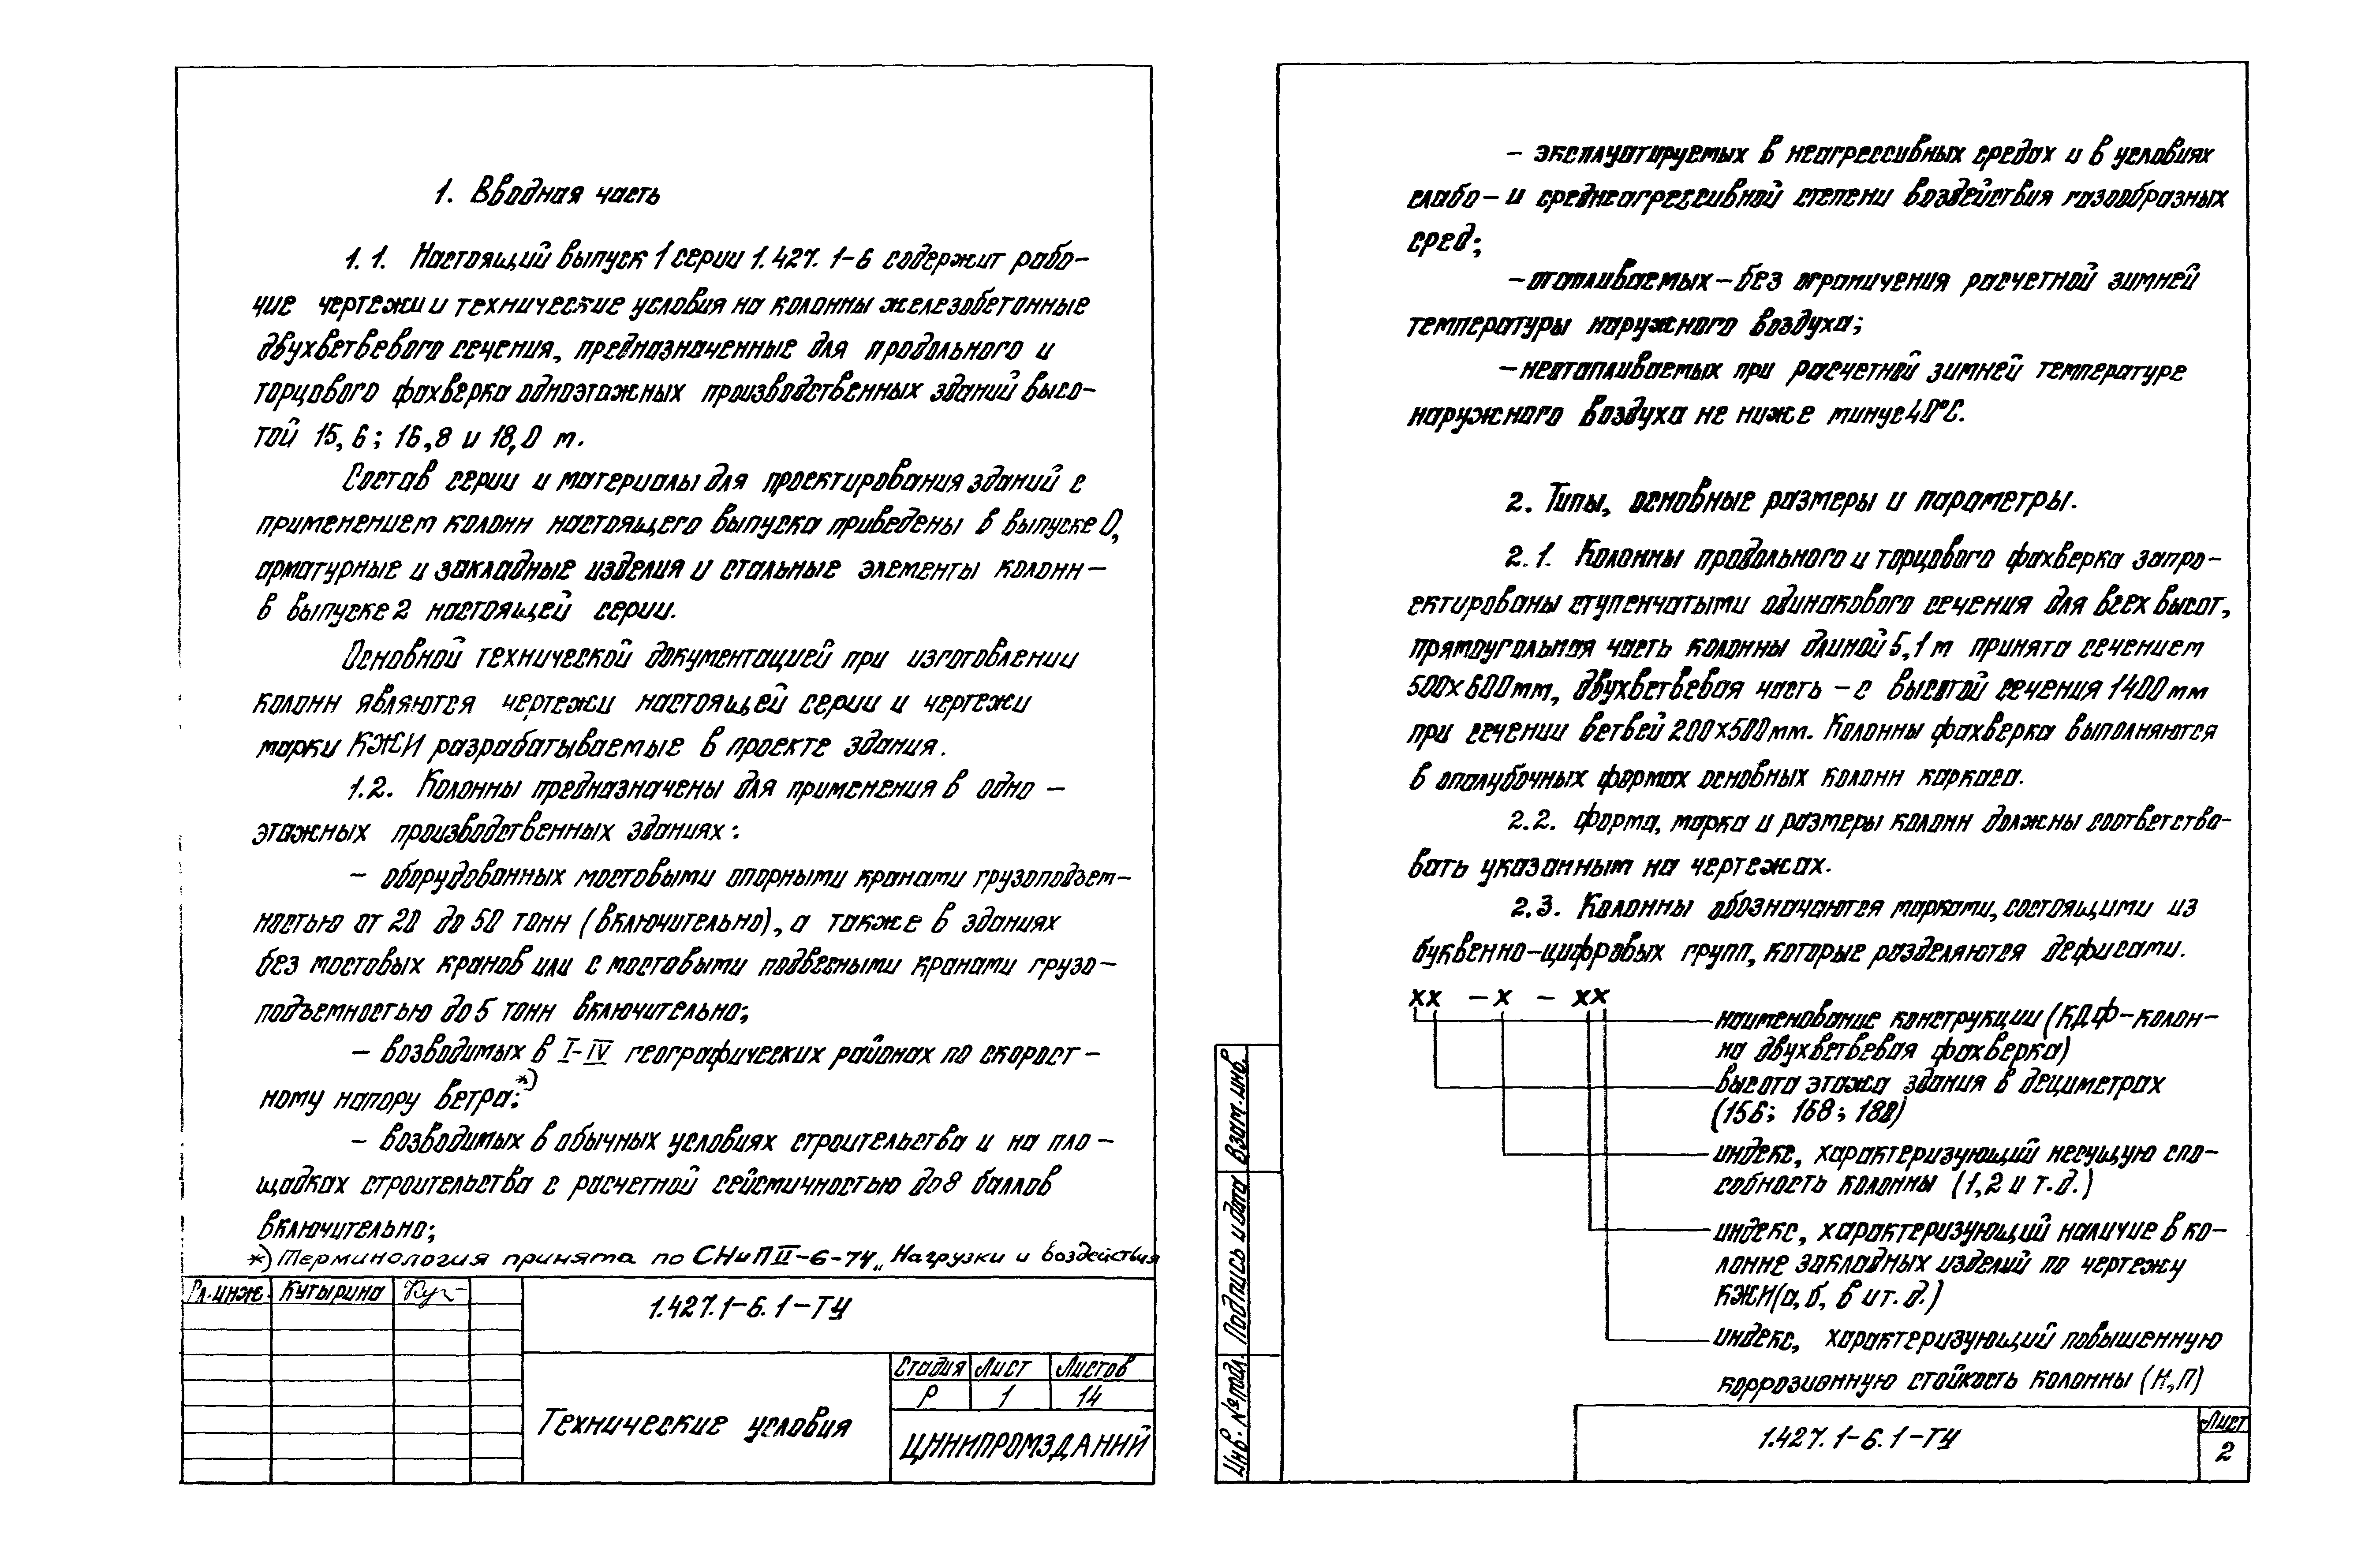 1. Вводная часть
1.1. Настоящий выпуск 1 серии 1.427.1-6 содержит рабо-
чие чертежи и технические условия на колонны железобетонные
двухветвевого сечения, предназначенные для продольного и
торцового фахверка одноэтажных производственных зданий высо-
той 15,6; 16,8 и 18,0 м.
Состав серии и материалы для проектирования зданий с
применением колонн настоящего выпуска приведены в выпуске 0,
арматурные и закладные изделия и стальные элементы колонн-
в выпуске 2 настоящей серии.
Основной технической документацией при изготовлении
колонн являются чертежи настоящей серии и чертежи
марки КЖИ разрабатываемые в проекте здания.
1.2. Колонны предназначены для применения в одно-
этажных производственных зданиях:
- оборудованных мостовыми опорными кранами грузоподъем-
ностью от 20 до 50 тонн (включительно), а также в зданиях
без мостовых кранов или с мостовыми подвесными кранами грузо-
подъемностью до 5 тонн включительно;
- возводимых в I-IV географических районах по скорост-
ному напору ветра;*)
- возводимых в обычных условиях строительства и на пло-
щадках строительства с расчетной сейсмичностью до 8 баллов
включительно;
*) Терминология принята по СНиП II-6-74 „Нагрузки и воздействия
Гл. инж. Кутырина
1.427.1-6.1-ТУ
Технические условия
Стадия Лист Листов
Р 1 14
ЦНИИПРОМЗДАНИЙ
- эксплуатируемых в неагрессивных средах и в условиях
слабо- и среднеагрессивной степени воздействия газообразных
сред;
- отапливаемых - без ограничения расчетной зимней
температуры наружного воздуха;
- неотапливаемых при расчетной зимней температуре
наружного воздуха не ниже минус 40°С.
2. Типы, основные размеры и параметры.
2.1. Колонны продольного и торцового фахверка запро-
ектированы ступенчатыми одинакового сечения для всех высот,
прямоугольная часть колонны длиной 5,1 м принята сечением
500х600мм, двухветвевая часть - с высотой сечения 1400 мм
при сечении ветвей 200х500мм. Колонны фахверка выполняются
в опалубочных формах основных колонн каркаса.
2.2. Форма, марка и размеры колонн должны соответство-
вать указанным на чертежах.
2.3. Колонны обозначаются марками, состоящими из
буквенно-цифровых групп, которые разделяются дефисами.
хх - х - хх
наименование конструкции (КДФ-колон-
на двухветвевая фахверка)
высота этажа здания в дециметрах
(156; 168; 180)
индекс, характеризующий несущую спо-
собность колонны (1,2 и т.д.)
индекс, характеризующий наличие в ко-
лонне закладных изделий по чертежу
КЖИ (а, б, в и т.д.)
индекс, характеризующий повышенную
коррозионную стойкость колонны (Н,П)
Взам. инв.
Подпись и дата
Инв. № подл.
1.427.1-6.1-ТУ
Лист
2